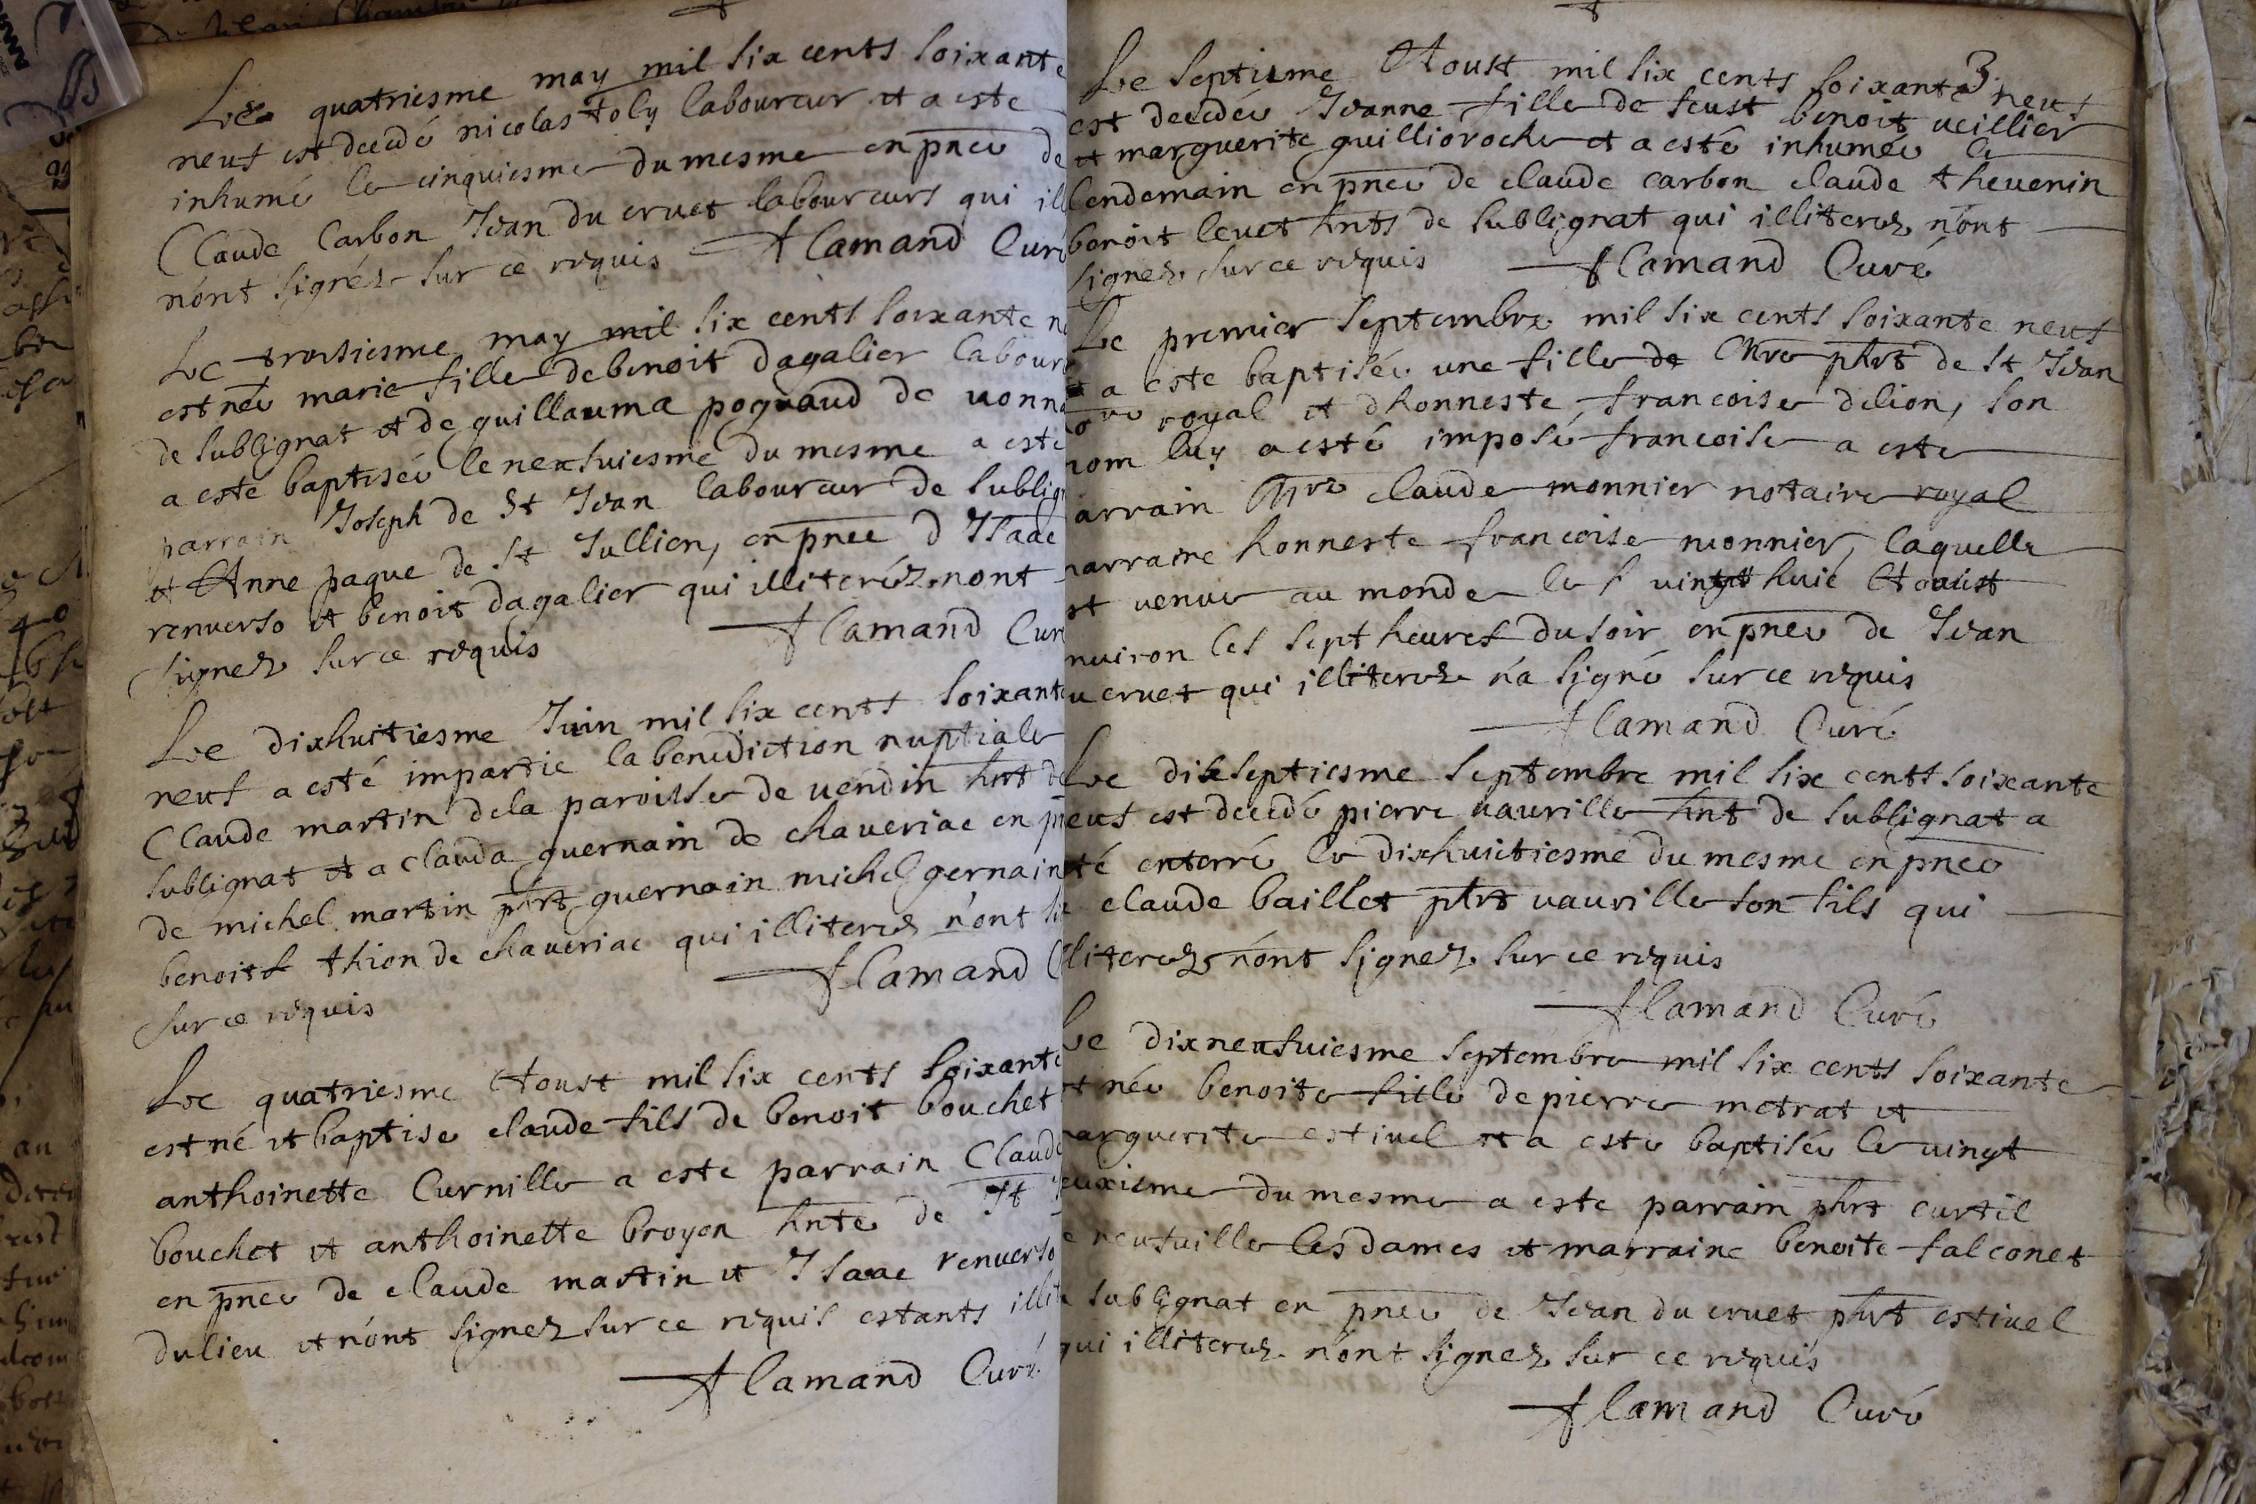 Le quatriesme may mil six cents soixante
neuf est decedé nicolas joly laboureur et a este
inhumé le cinquiesme du mesme en pnce de
Claude Carbon Jean du cruet laboureurs qui ill
n'ont signés sur ce requis Alamand Curé
Le troisiesme may mil six cents soixante n
est née marie fille de benoit dagalier labour
de sublignat et de guillauma poguaud de uonna
a este baptisée le neufuiesme du mesme a este
parrain Joseph de St Jean laboureur de sublign
et Anne paque de St Jullien, en pnce d Isaac
renuerso et benoit dagalier qui illiteréz nont
signez sur ce requis Alamand Cur
Le dixhuitiesme Juin mil six cents soixante
neuf a esté impartie la benediction nuptiale
Claude martin de la paroisse de uendin hnt de
sublignat et a clauda guernain de chaueriac en pn
de michel martin phrt guernain michel gernain
benoist thion de chaueriac qui illiterez n'ont si
sur ce requis Alamand C
Le quatriesme Aoust mil six cents soixante
est né et baptise claude fils de benoit bouchet
anthoinette Curnille a este parrain Claude
bouchet et anthoinette broyen hnte de St J
en pnce de claude martin et Isaac renuerso
du lieu et n'ont signez sur ce requis estants illite
Alamand Curé
3
Le septieme Aoust mil six cents soixante neuf
est decedée Jeanne fille de feust benoit ueillier
et marguerite guillioroche et a esté inhumée le
lendemain en pnce de claude carbon claude theuenin
benoit leuet hnts de sublignat qui illiterez n'ont
signez sur ce requis Alamand Curé
Le premier septembre mil six cents soixante neuf
et a este baptisée une fille de Mre phrt de St Jean
nore royal et dhonneste francoise delion, son
nom luy a esté imposé francoise a este
arrain Mre claude monnier notaire royal
marraine honneste francoise monnier, laquelle
st uenue au monde le uingt huic Aoust
nuiron les sept heures du soir en pnce de Jean
u cruet qui illiterez n'a signé sur ce requis
Alamand Curé
Le dixseptiesme septembre mil six cents soixante
neuf est decedé pierre uaurille hnt de sublignat a
té enterré le dixhuictiesme du mesme en pnce
claude baillet phrt uaurille son fils qui
lliterez n'ont signez sur ce requis
Alamand Curé
Le dixneufuiesme septembre mil six cents soixante
st née benoite fille de pierre metrat et
marguerite estiuel et a este baptisée le uingt
euxieme du mesme a este parrain phrt curtil
e neufuille les dames et marraine benoite falconet
sublignat en pnce de Jean du cruet phrt estiuel
qui illiterez n'ont signez sur ce requis
Alamand Curé